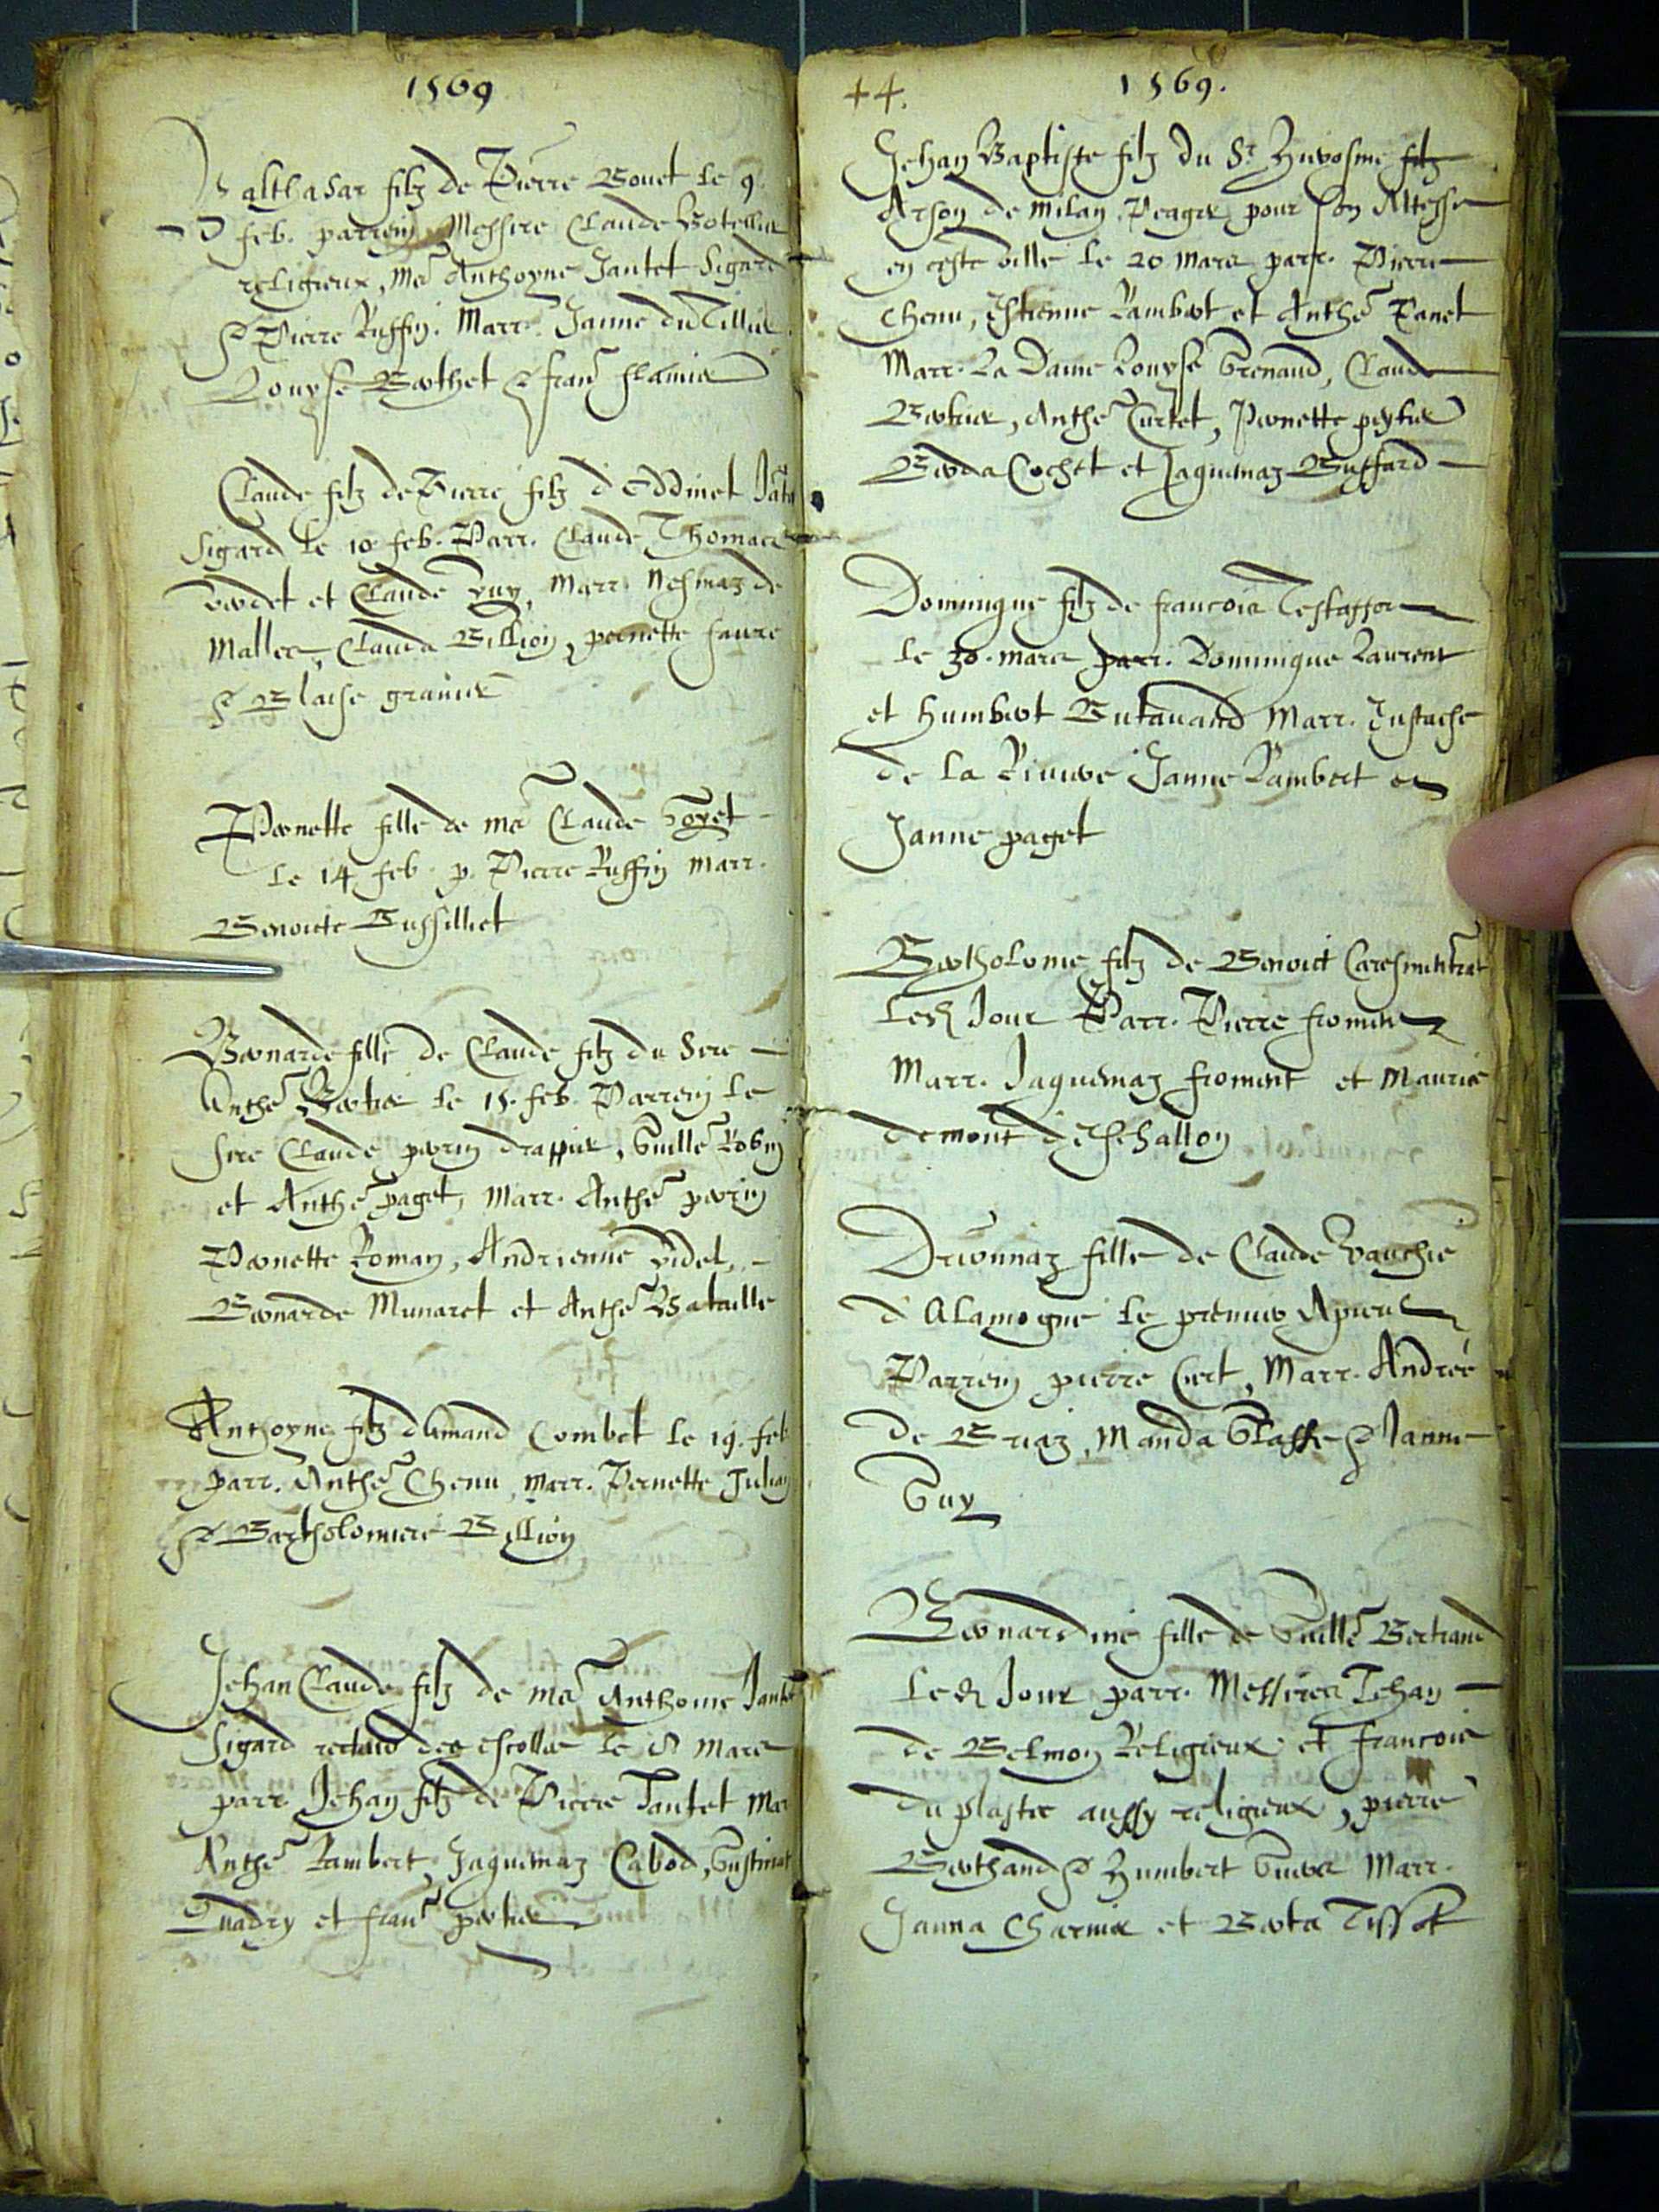 1569
Balthasar filz de Pierre Bouet le 9
feb. parrein Messire Claude
religieux, me Anthoyne Jantet Sigard
& Pierre Ruffin. Marr. Janne du Tillier
Louyse Berthet & fran
Claude filz de Pierre filz d'Eddinet
Sigard le 10 feb. Parr. Claude Thomas
et Claude Marr. de
Clauda Billion, pernette faure
& Blaise
Pernette fille de me Claude Goyet
le 14 feb. p. Pierre Ruffin Marr.
Benoicte Bussilliet
Bernarde fille de Claude filz du Sire
Anthe le 15. feb. Parrein le
sire Claude perrin drappier, Guille Robin
et Anthe paget, Marr. Anthe perrin
Pernette Roman, Andrienne videl,
Bernarde Munaret et Anthe Bataille
Anthoyne filz damand Combet le 19. feb
parr. Anthe Chenu, Marr. Pernette Julian
& Bartholomiere Billion
Jehan Claude filz de me Anthoine Jantet
Sigard recteur des escolles le 8 mars
parr. Jehan filz de Pierre Jantet Mar
Anthe Rambert, Jaquemaz Cabod,
et fran
44.
1569.
Jehan Baptiste filz du Sr filz
de milan, Peager pour son Altesse
en ceste ville le 20 mars parr. Pierre
Chenu, Estienne Rambert et Anthe Panet
Marr. La Dame Louyse Grenaud, Claude
Anthe Curtet, Pernette
Cochet et Jaquemaz Buffard
Dominique filz de francois
le 30. mars parr. Dominique Laurent
et humbert Butauand Marr. Justache
de la Riviere Janne Rambert et
Janne paget
Bertholome filz de Benoict
led Jour Parr. Pierre froment
Marr. Jaquemaz froment et Maurie
demont deschallon
fille de Claude
d'Alamogne le premier Apvril
Parrein pierre Marr. Andree
de Manda & Janne
Guy
Bernardine fille de Guille Bertrand
led Jour parr. Messires Jehan
de Belmon Religieux et francois
du plastre aussy religieux, pierre
& Humbert Marr.
Janna et Berta Tissot